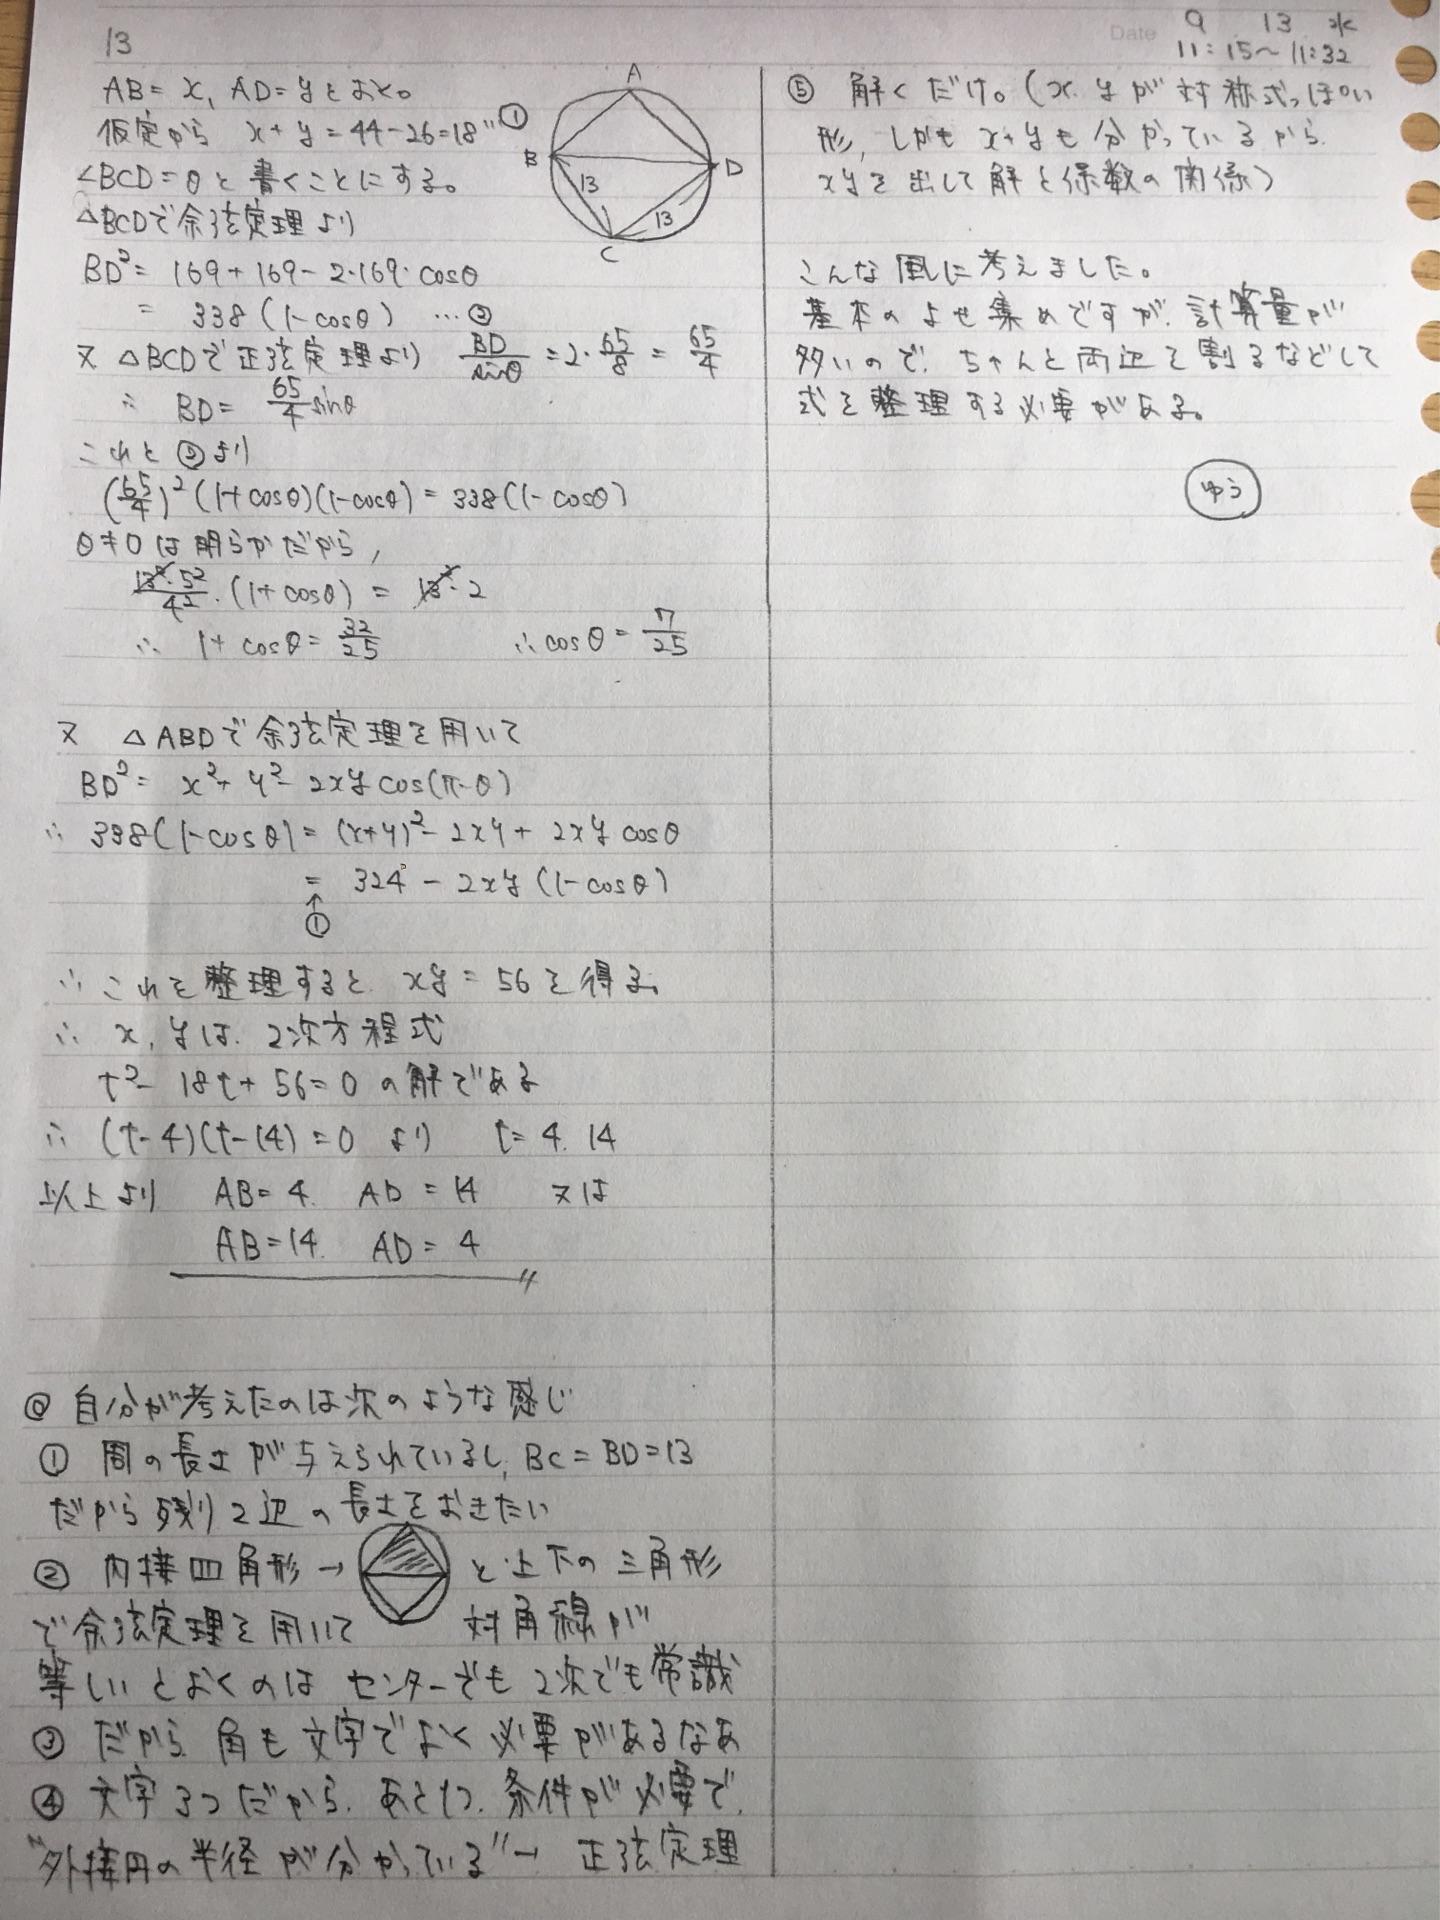 13
Date 9 13 水
11:15～11:32
AB=x, AD=yとおく。
仮定から x+y=44-26=18 ①
∠BCD=θと書くことにする。
△BCDで余弦定理より
BD²=169+169-2・169・cosθ
=338(1-cosθ) …②
又 △BCDで正弦定理より BD/sinθ=2・65/8=65/4
∴ BD=65/4 sinθ
これと②より
(65/4)²(1+cosθ)(1-cosθ)=338(1-cosθ)
θ≠0は明らかだから,
13²・5²/4²・(1+cosθ)=13²・2
∴ 1+cosθ=32/25 ∴cosθ=7/25
A
B
D
13
13
C
又 △ABDで余弦定理を用いて
BD²=x²+y²-2xy cos(π-θ)
∴ 338(1-cosθ)=(x+y)²-2xy+2xy cosθ
=324-2xy(1-cosθ)
↑
①
∴ これを整理すると xy=56を得る。
∴ x, yは 2次方程式
t²-18t+56=0 の解である
∴ (t-4)(t-14)=0 より t=4. 14
以上より AB=4. AD=14 又は
AB=14. AD=4
◎ 自分が考えたのは次のような感じ
① 周の長さが与えられているし, BC=BD=13
だから残り2辺の長さをおきたい
② 内接四角形→ と上下の三角形
で余弦定理を用いて 対角線が
等しいとおくのは センターでも2次でも常識
③ だから 角も文字でおく必要があるなあ
④ 文字3つだから. あと1つ. 条件が必要で.
"外接円の半径が分かっている"→ 正弦定理
⑤ 解くだけ。(x. yが対称式っぽい
形, しかも x+yも分かっているから.
xyを出して解と係数の関係)
こんな風に考えました。
基本のよせ集めですが. 計算量が
多いので. ちゃんと両辺を割るなどして
式を整理する必要がある。
ゆう